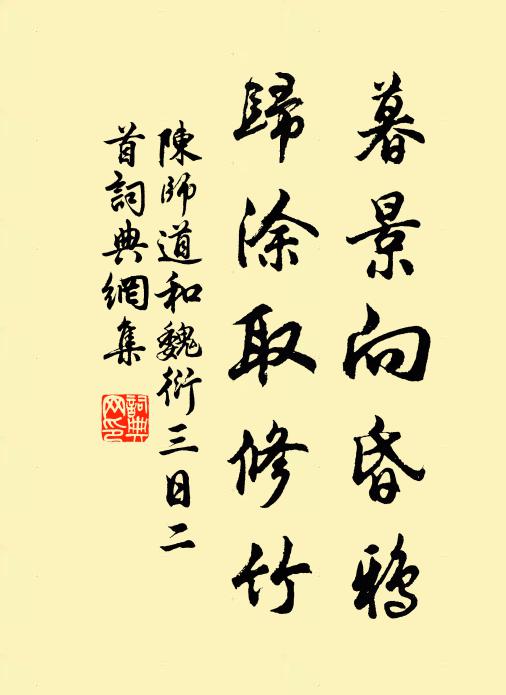 暮景向昏鴉
歸涂取修竹
陳師道和魏衍三日二
首詞典網集
詞典網印